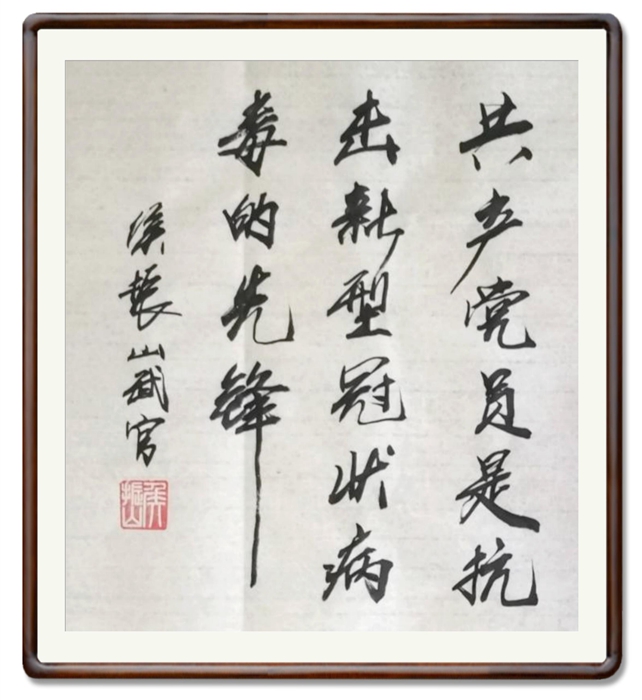 共产党员是抗
击新型冠状病
毒的先锋
侯振山武官
侯振山